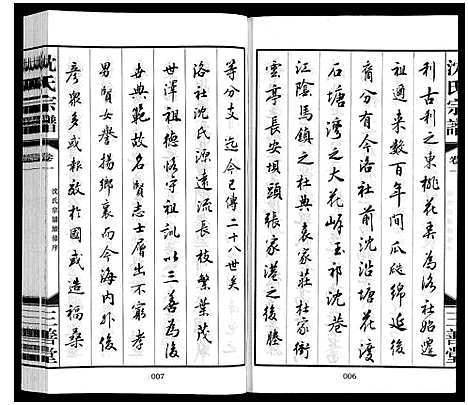 沈氏宗譜
卷一
三善堂
利古利之東桃花景為洛社始遷
祖通来数百年間瓜瓞綿延後
裔分有今洛社前沈沿塘花渡
石塘灣之大花岸玉祁沈巷
江陰馬鎮之杜典袁家莊杜家衖
雲亭長安垻頭張家港之後塍
006
等分支迄今已傳二十八世矣
洛社沈氏源遠流長枝繁葉茂
世澤祖德恪守祖訓以三善為後
世典範故名賢志士層出不窮孝
男賢女譽揚鄉裏而今海内外俊
彥眾多或報放於國或造福桑
007
沈氏宗譜
卷一
沈氏宗譜續修序
三善堂